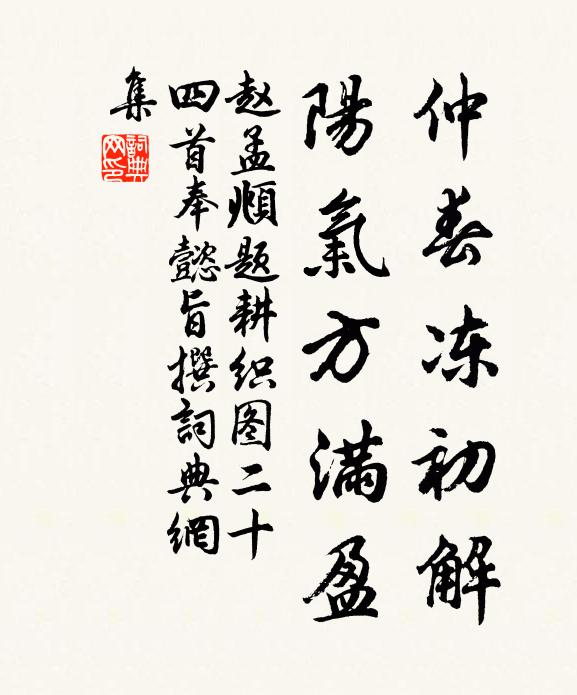 仲春冻初解
陽氣方滿盈
赵孟頫题耕织图二十
四首奉懿旨撰詞典網
集
詞典網印